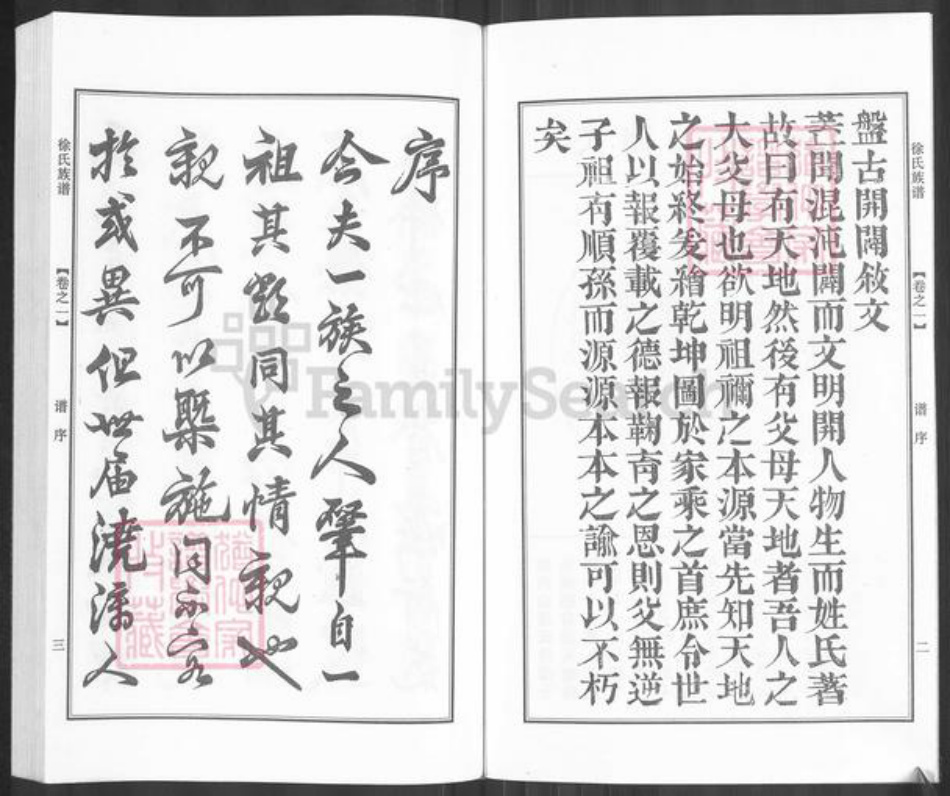 徐氏族谱
【卷之一】
谱序
二
盤古開闢敘文
葢聞混沌闢而文明開人物生而姓氏著
故曰有天地然後有父母天地者吾人之
大父母也欲明祖禰之本源當先知天地
之始終爰繪乾坤圖於家乘之首庶令世
人以報覆載之德報鞠育之恩則父無逆
子祖有順孫而源源本本之論可以不朽
矣
序
合夫一族之人肇自一
祖其勢同其情親也
親不可以槩施同不容
於或異但世届澆漓人
徐氏族谱
【卷之一】
谱序
三
FamilySearch